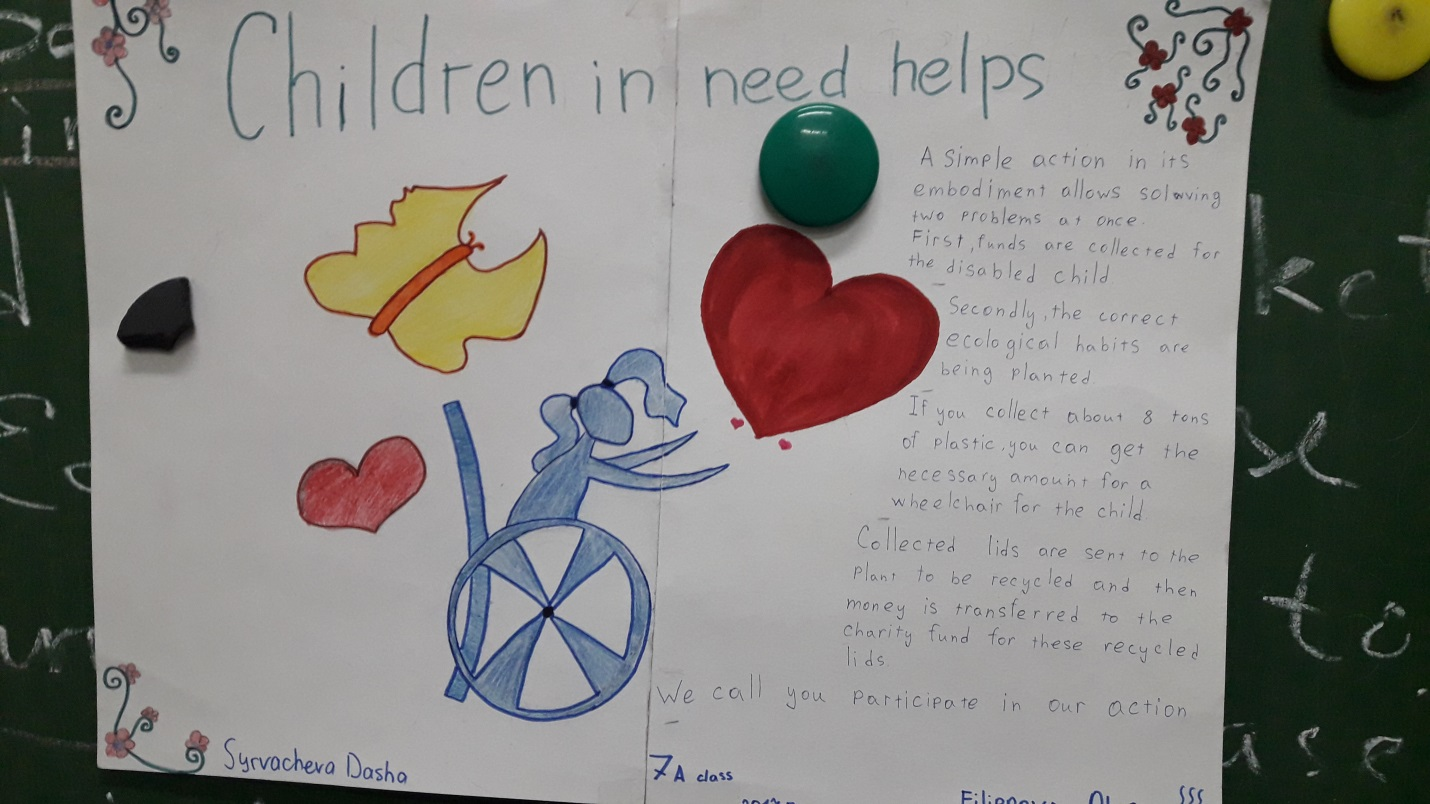 Children in need helps
A simple action in its
embodiment allows solving
two problems at once.
First, funds are collected for
the disabled child
Secondly, the correct
ecological habits are
being planted
If you collect about 8 tons
of plastic, you can get the
necessary amount for a
wheelchair for the child
Collected lids are sent to the
plant to be recycled and then
money is transferred to the
charity fund for these recycled
lids.
We call you participate in our action
Syrvacheva Dasha
7A class
to